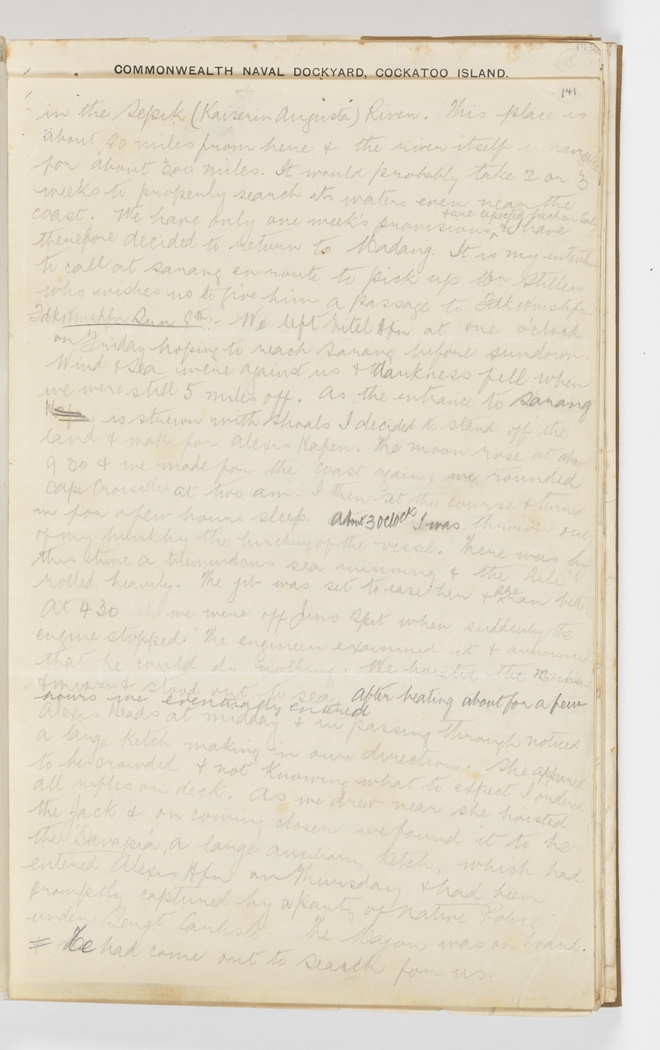 COMMONWEALTH NAVAL DOCKYARD, COCKATOO ISLAND.
141
in the Sepik (Kaiserin Augusta) River. This place is
about 90 miles from here & the river itself is navigable
for about 300 miles. It would probably take 2 or 3
weeks to properly search its waters even near the
coast. We have only one week's provisions & I have
therefore decided to return to Madang. It is my intention
to call at Sarang en route to pick up Stiller
who wishes us to give him a passage to Fdk Wmshfn.
Fdk Wmshfn Sun 8th:- We left Hfn at one o'clock
on Friday hoping to reach Sarang before sundown.
Wind & sea were against us & darkness fell when
we were still 5 miles off. As the entrance to Sarang
is strewn with shoals I decided to stand off the
land & make for Alexis Hafen. The moon rose at about
9 30 & we made for the coast again, we rounded
Cape Croisilles at two am. I then set the course & turned
in for a few hours sleep. About 3 oclock I was thrown out
of my bunk by the lurching of the vessel. There was by
this time a tremendous sea running & the
rolled heavily. The jib was set to ease her & she ran better.
At 4 30 we were off Juno Spit when suddenly the
engine stopped. The engineer examined it & announced
that he could do nothing. We hoisted the
& stood out to sea. After beating about for a few
hours we eventually entered
Alexis Heads at midday & in passing through noticed
a large ketch making in our direction. She appeared
to be crowded & not knowing what to expect I ordered
all rifles on deck. As we drew near she hoisted
the Jack & on coming closer we found it to be
the a large auxiliary ketch, which had
entered Alexis Hfn on Thursday & had been
promptly captured by a party of native Police
under Sergt The Major was on board
= He had come out to search for us.